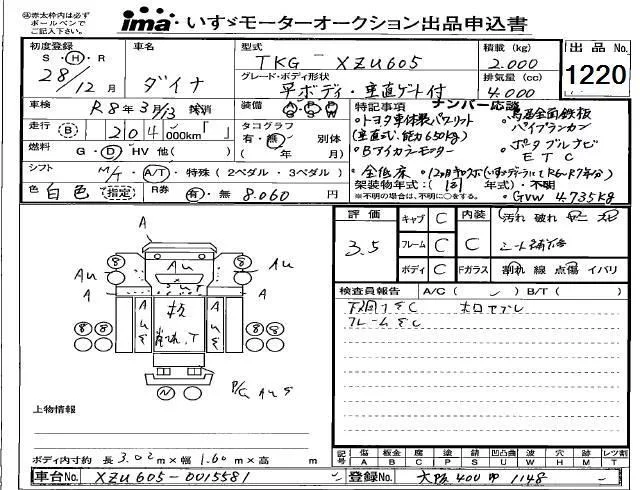 ㊟赤太枠内は必ず
ボールペンで
ご記入ください。
ima いすゞモーターオークション出品申込書
初度登録 車名 型式 積載 (kg) 出品No.
S・H・R
28/12月 ダイナ
TKG - XZU605 2.000
グレード・ボディ形状 排気量 (cc)
平ボディ・垂直ゲート付 4.000
1220
車検 R8年3月/13 抹消
装備 A/C P/S P/W
特記事項 ナンバー応談
走行 B 204,000km
タコグラフ 有・無 別体
( 年 月)
燃料 G・D・HV 他( )
シフト M/T・A/T・特殊(2ペダル・3ペダル)
色 白色 指定 R券 有・無 8.060 円
・トヨタ車体製パワーリフト
(垂直式、能力650kg)
・Bアイカラーモニター
・全低床
・鳥居全面鉄板
パイプランカン
・ポータブルナビ
ETC
架装物年式:( 同 年式)・不明
※不明の場合は、不明に○をする。
・GVW 4.735kg
評価 3.5
キャブ C 内装 C 汚れ 破れ
フレーム C シート補修
ボディ C Fガラス 割れ 線 点傷 イバリ
検査員報告 A/C ( ✓ ) B/T ( )
下回りSC
フレームSC
A
8 8
Au Au Au
A A
A A
8 8 8 8
N
P/G AuS
上物情報
ボディ内寸約 長 3.02 m × 幅 1.60 m × 高 m
記号 傷 A 板金 B 腐 C 塗 P 錆 S 凹凸曲 U 波 W 修 M 穴 H 跡 M レツ割 T
車台No. XZU605-0015581
登録No. 大阪 400 1148